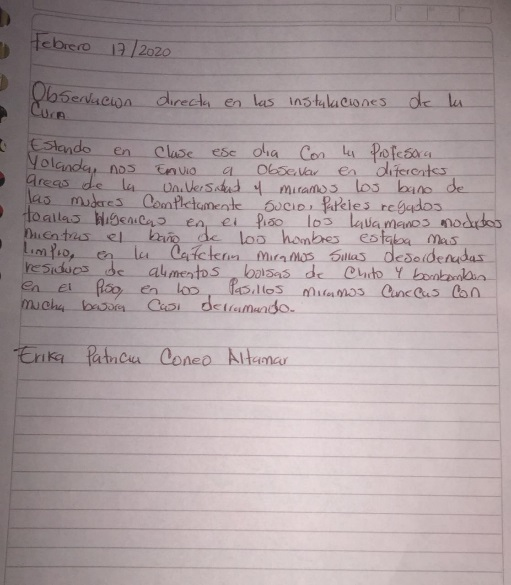 Febrero 17/2020
Observacion directa en las instalaciones de la
Curn
Estando en clase ese dia Con la Profesora
Yolanda, nos Envio a Observar en diferentes
areas de la Universidad y miramos los baño de
las mujeres Completamente sucio, Papeles regados
toallas higenicas en el Piso los lavamanos mojados
mientras el baño de los hombes estaba mas
Limpio, en la Cafeteria miramos Sillas desordenadas
residuos de alimentos, bolsas de Chito y bombombun
en el Piso, en los Pasillos miramos Canecas Con
mucha basura Casi derramando.
Erika Patricia Coneo Altamar